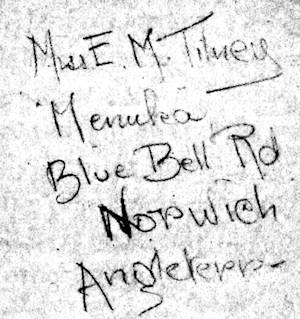 Miss E. M. Tilney
Menuka
Blue Bell Rd
Norwich
Angleterre